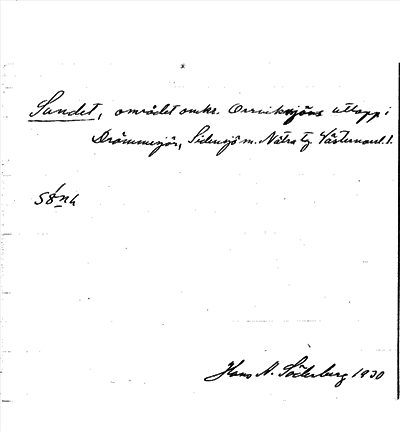 Sundet, området omkr. Orrviksjöns utlopp i
Drömmesjön, Sidensjö sn. Nätra tg Västernorrl. l.
Hans A. Söderberg 1930